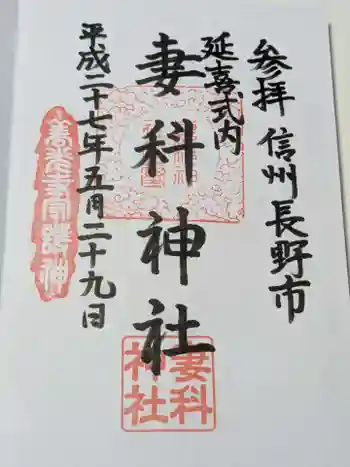 参拝 信州長野市
延喜式内
妻科神社
平成二十七年五月二十九日
妻科
神社